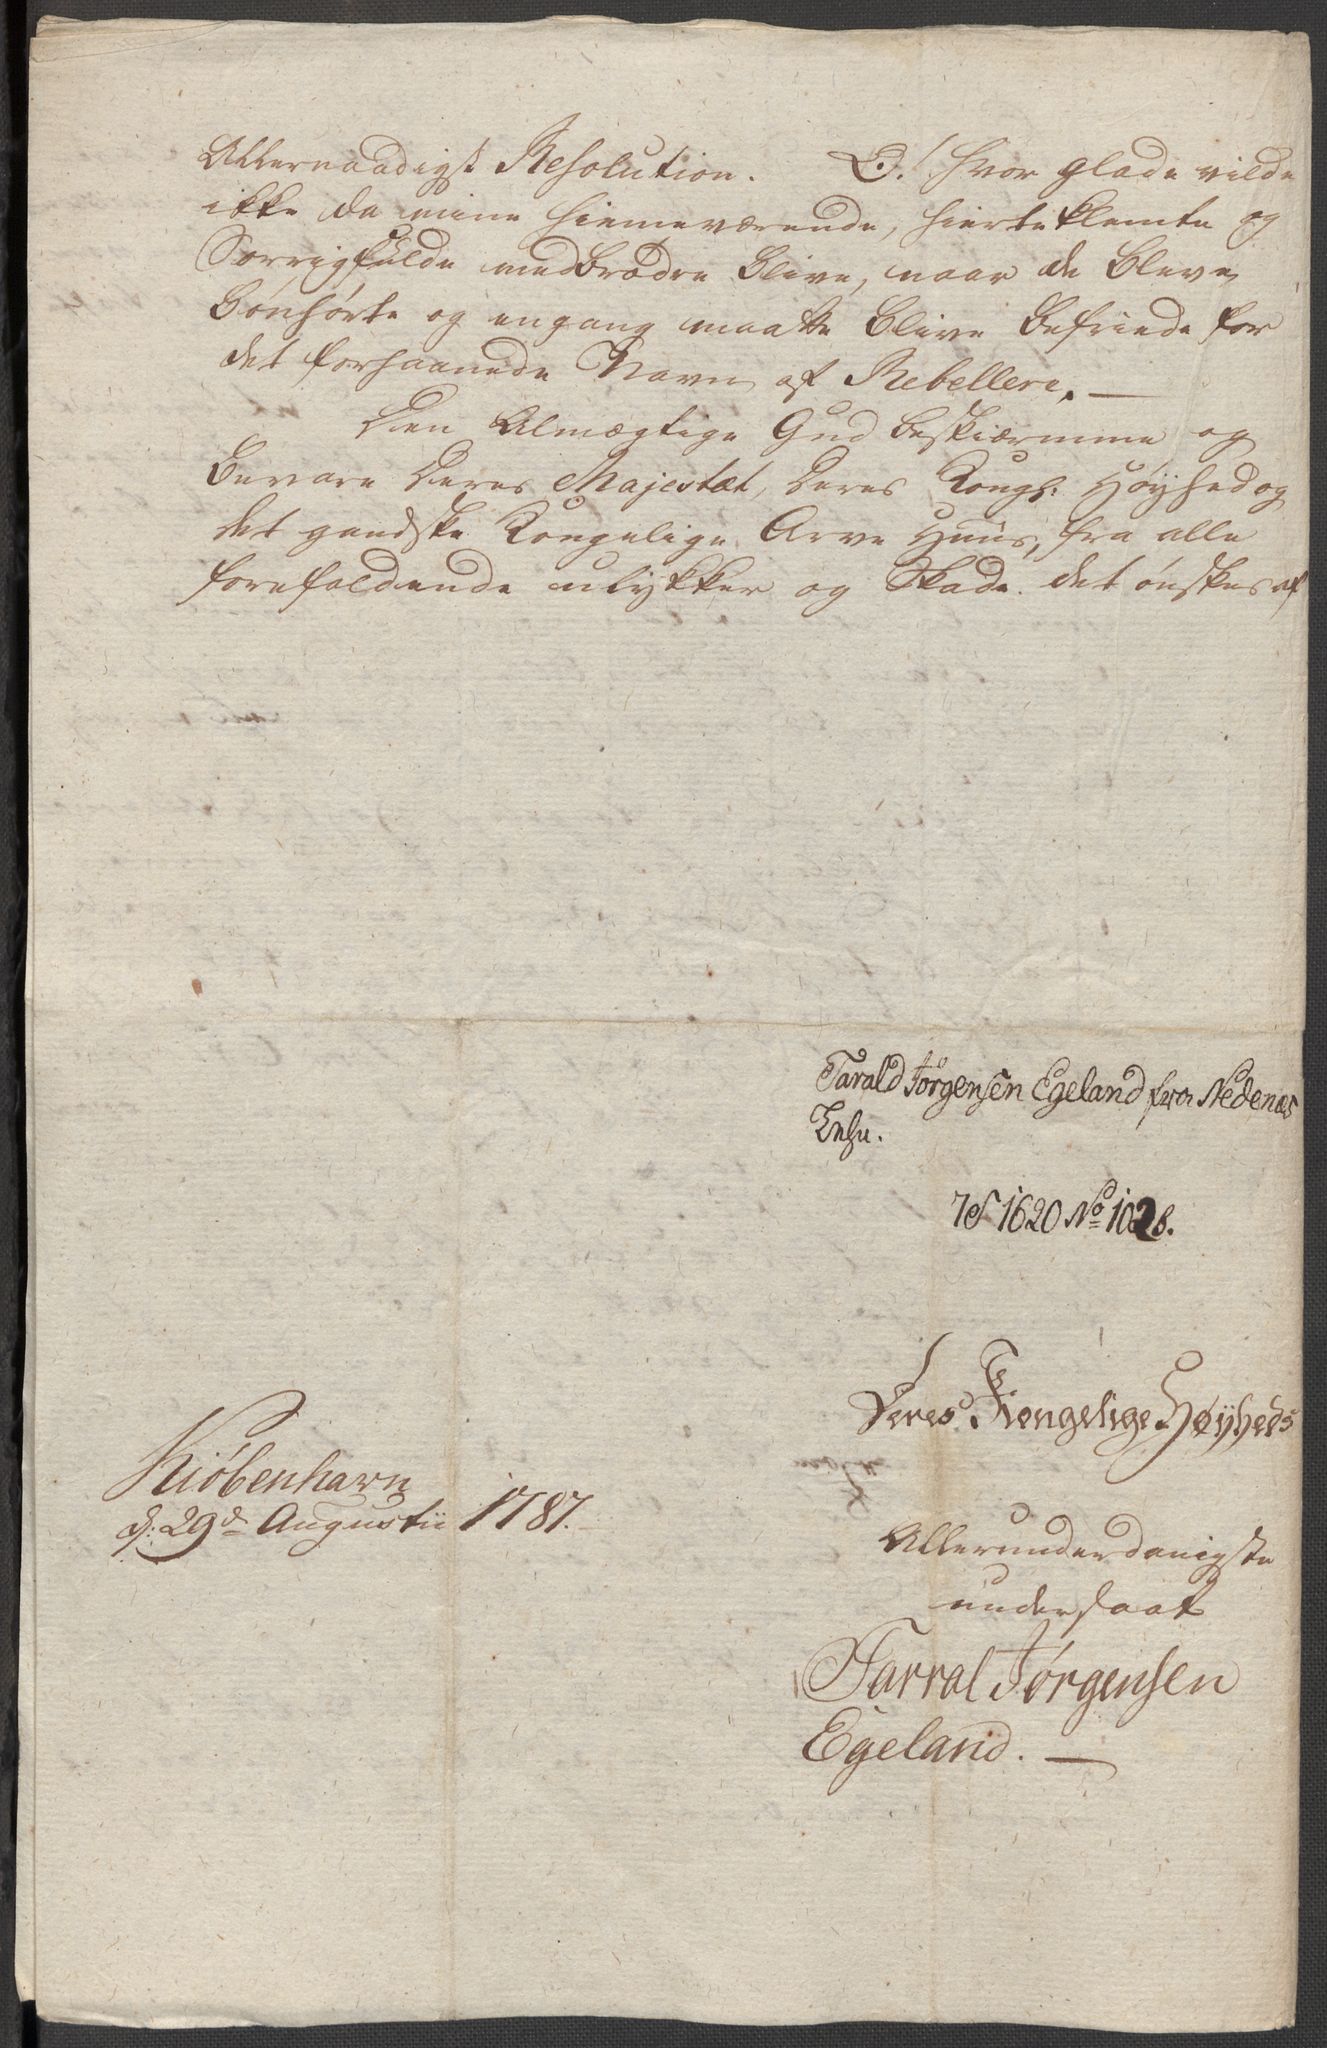 Allernaadigst Resolution. O! hvor glade vilde
ikke da mine hiemeværende, hierteklemte og
Sorrigfulde medbrødre blive, naar de bleve
bønhørte og engang maatte blive befriede for
det forhaanede Navn af Rebellere. —
Den Almægtige Gud beskiærmme og
bevare Deres Majestæt, Deres Kongl: Høyhed og
det gandske Kongelige Arve Huus, fra alle
forefaldende ulykker og Skade. det ønskes af
Tarald Jørgensen Egeland fra Nedenæs
Lehn.
1620 No
Deres Kongelige Høyheds
Kiøbenhavn
d: 29d Augustii 1787.
Allerunderdanigste
undersaat
Tarral Jørgensen
Egeland. —